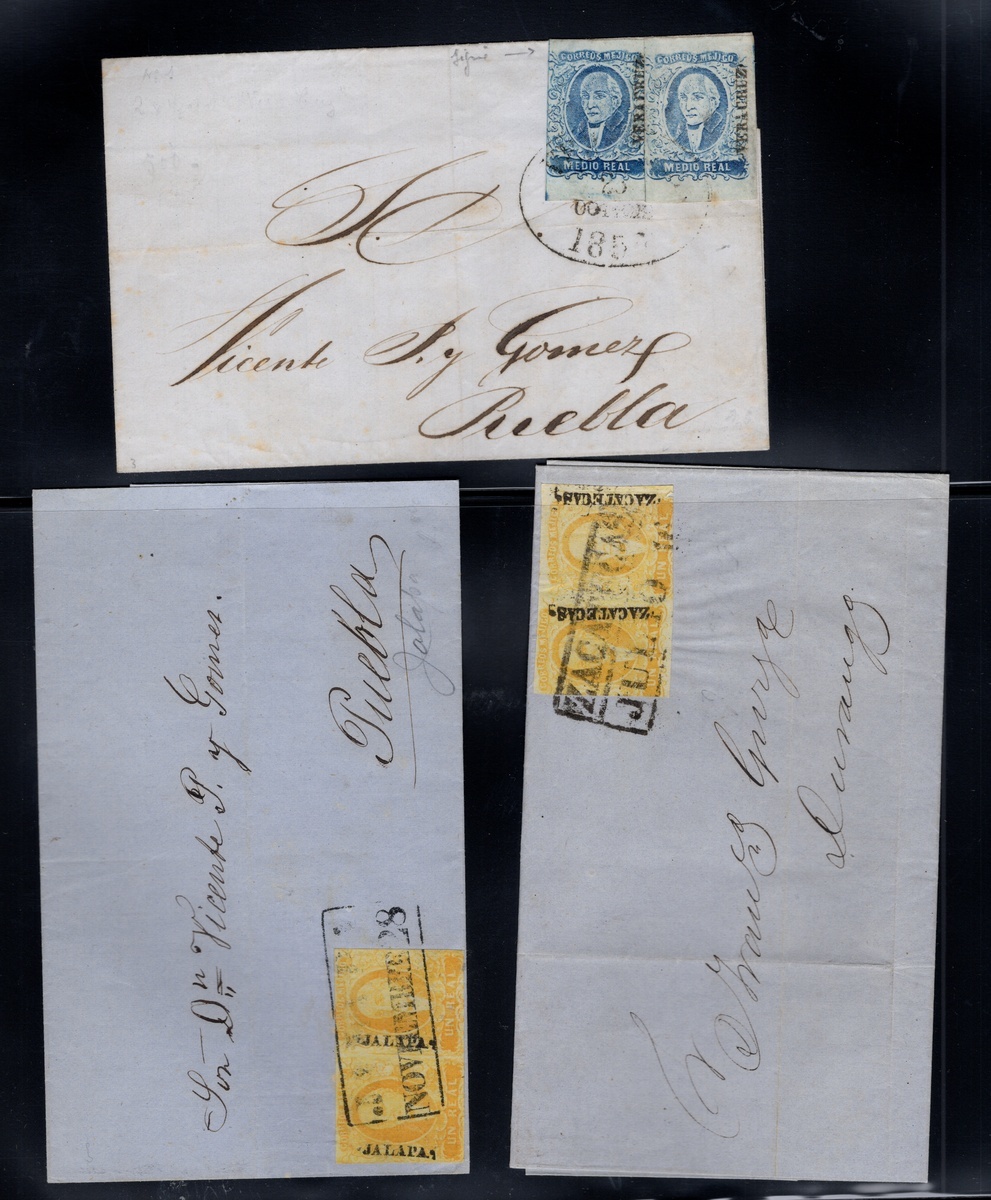 Signé →
CORREOS MEJICO CORREOS MEJICO
VERACRUZ VERACRUZ
MEDIO REAL MEDIO REAL
185
Vicente P. y Gomez
Puebla
Sor Dn Vicente P. y Gomez.
Puebla
Jalapa
NOVIEMBRE 28
JALAPA. JALAPA.
UN REAL UN REAL
ZACATECAS,
ZACATECAS,
ZACATECAS
JULIO
UN
Durango.